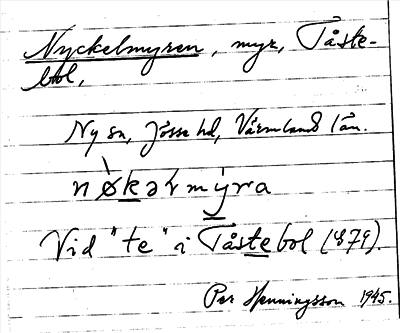 Nyckelmyren, myr, Tåste-
bol,
Ny sn, Jösse hd, Värmlands län.
nø̀kəɫmýra
Vid "te" i Tåstebol (879).
Per Henningsson 1945.